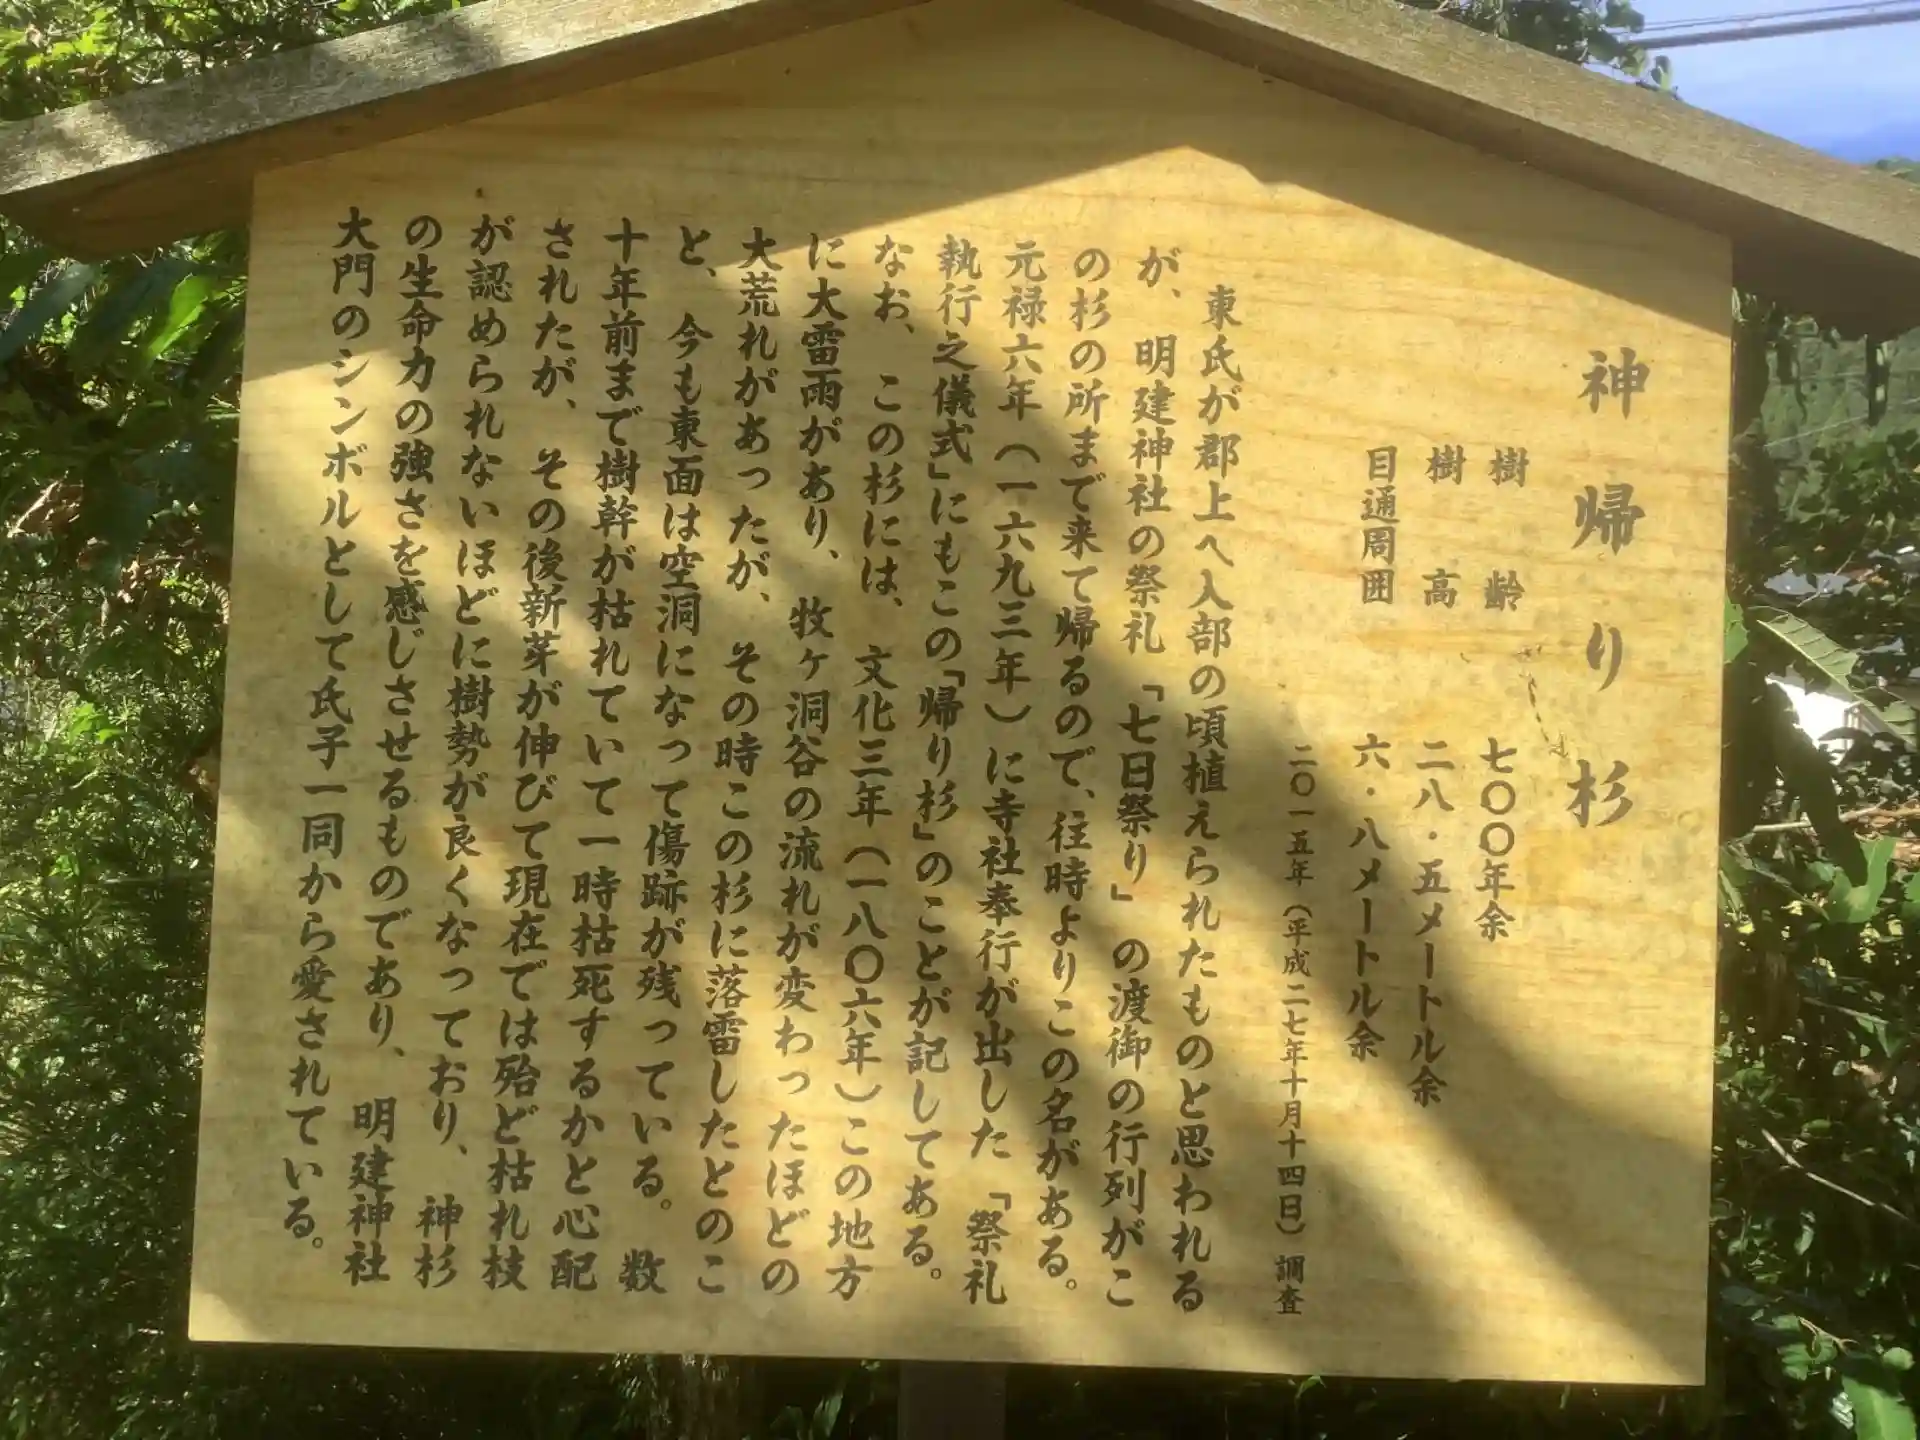 神帰り杉
樹齢 七〇〇年余
樹高 二八・五メートル余
目通周囲 六・八メートル余
二〇一五年(平成二七年十月十四日)調査
東氏が郡上へ入部の頃植えられたものと思われる
が、明建神社の祭礼「七日祭り」の渡御の行列がこ
の杉の所まで来て帰るので、往時よりこの名がある。
元禄六年(一六九三年)に寺社奉行が出した「祭礼
執行之儀式」にもこの「帰り杉」のことが記してある。
なお、この杉には、文化三年(一八〇六年)この地方
に大雷雨があり、牧ヶ洞谷の流れが変わったほどの
大荒れがあったが、その時この杉に落雷したとのこ
と、今も東面は空洞になって傷跡が残っている。数
十年前まで樹幹が枯れていて一時枯死するかと心配
されたが、その後新芽が伸びて現在では殆ど枯れ枝
が認められないほどに樹勢が良くなっており、神杉
の生命力の強さを感じさせるものであり、明建神社
大門のシンボルとして氏子一同から愛されている。